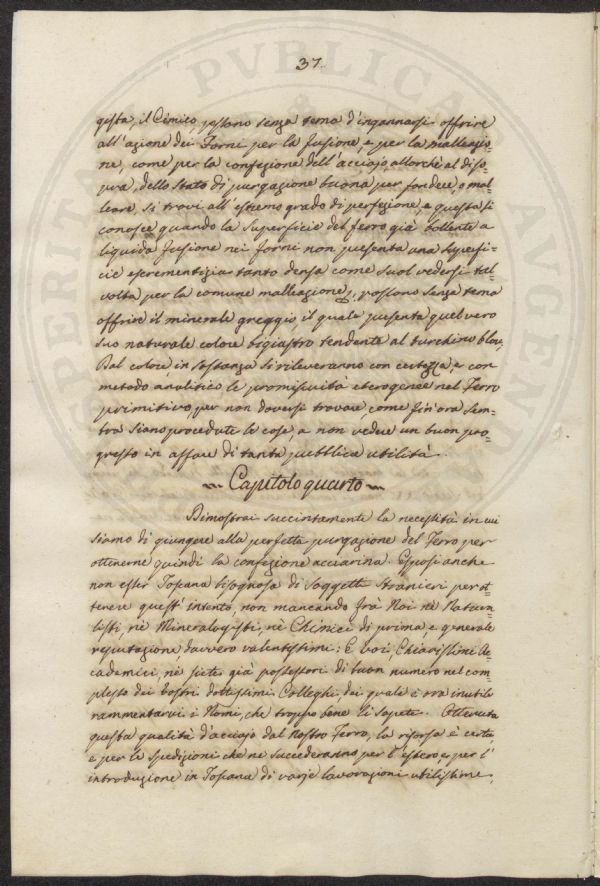 37.
gista, il Cimico, possono senza tema d'ingannarsi offrire
all'azione dei Forni per la fusione, e per la malleazio=
ne, come per la confezione dell'acciajo, allorchè al diso=
pra dello stato di purgazione buona per fondere, o mal=
leare, si trovi all'estremo grado di perfezione, e questa si
conosce quando la superficie del ferro già bollente a
liquida fusione nei forni non presenta una superfi=
cie escrementizia tanto densa come suol vedersi tal
volta per la comune malleazione, possono senza tema
offrire il minerale greggio, il quale presenta quel vero
suo naturale colore bigiastro tendente al turchino bleu,
Dal colore, in sostanza si rileveranno con certezza, e con
metodo analitico le promiscuità eterogenee nel Ferro
primitivo, per non doversi trovare, come fin'ora sem=
bra siano procedute le cose, a non vedere un buon pro=
gresso in affare di tanta pubblica utilità.
Capitolo quarto
Dimostrai succintamente la necessità in cui
siamo di giungere alla perfetta purgazione del Ferro per
ottenerne quindi la confezione acciarina. Esposi anche
non esser Toscana bisognosa di Soggetti Stranieri per ot=
tenere quest'intento, non mancando frà Noi nè Natura=
listi, nè Mineralogisti, nè Chimici di prima, e generale
reputazione davvero valentissimi: E voi, Chiarissimi Ac=
cademici, nè siete già possessori di buon numero nel com=
plesso dei vostri dottissimi Colleghi, dei quale è ora inutile
rammentarvi i Nomi, che troppo bene li sapete. Ottenuta
questa qualità d'acciajo dal nostro Ferro, la risorsa è certa,
e per le spedizioni che ne succederanno per l'estero, e per l'
introduzione in Toscana di varie lavorazioni utilissime,
PUBLICA